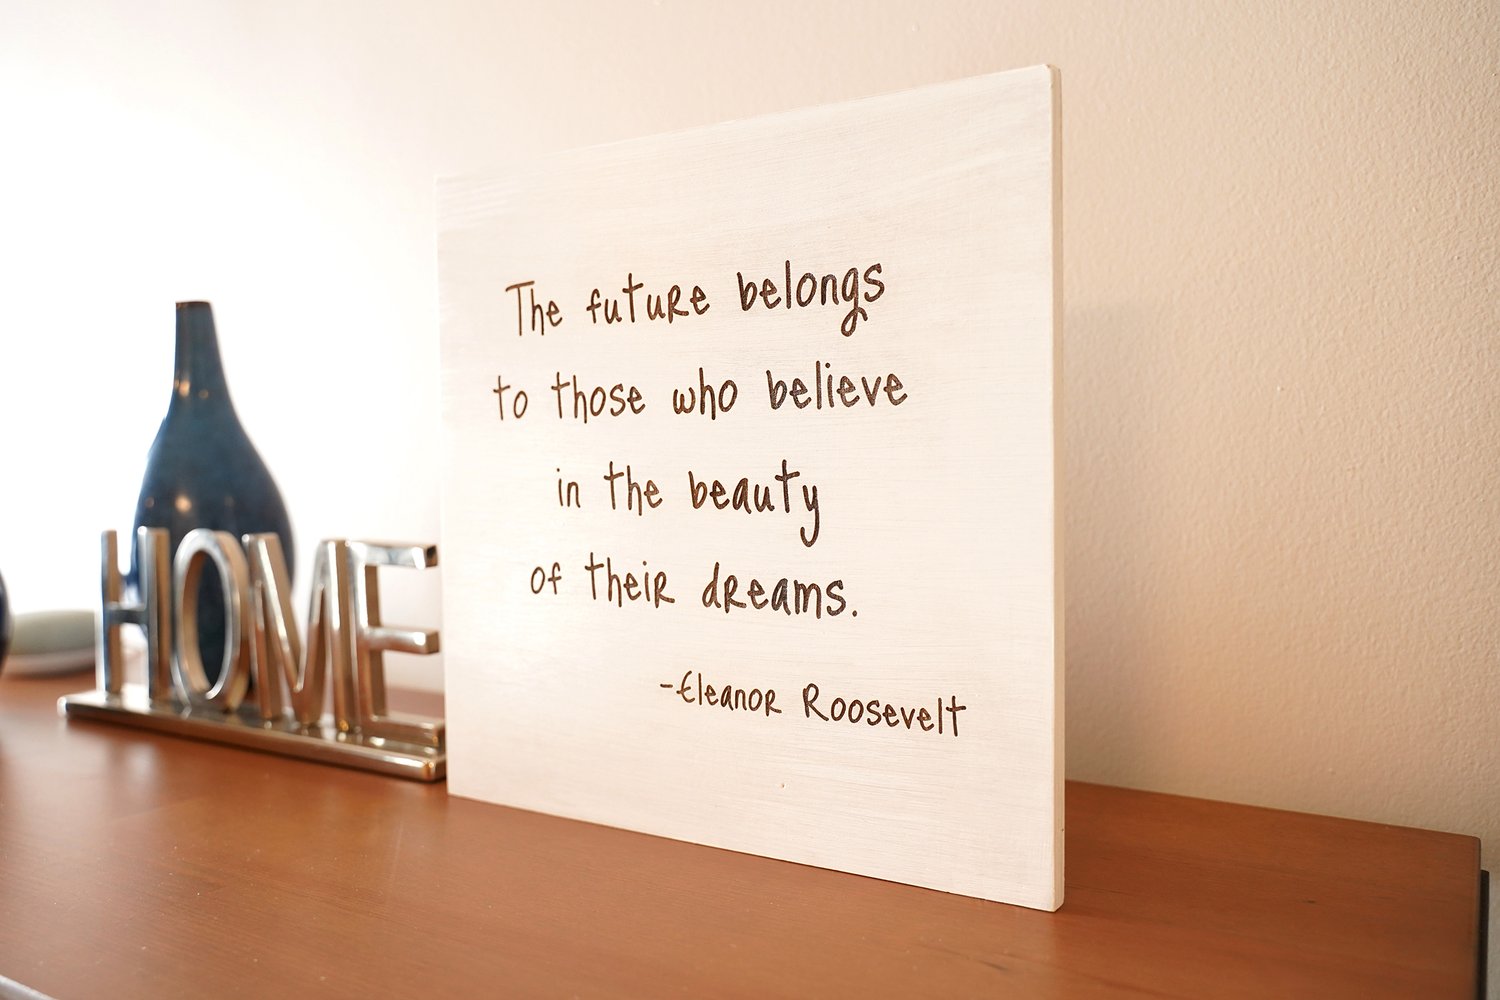 HOME
The future belongs
to those who believe
in the beauty
of their dreams.
-Eleanor Roosevelt